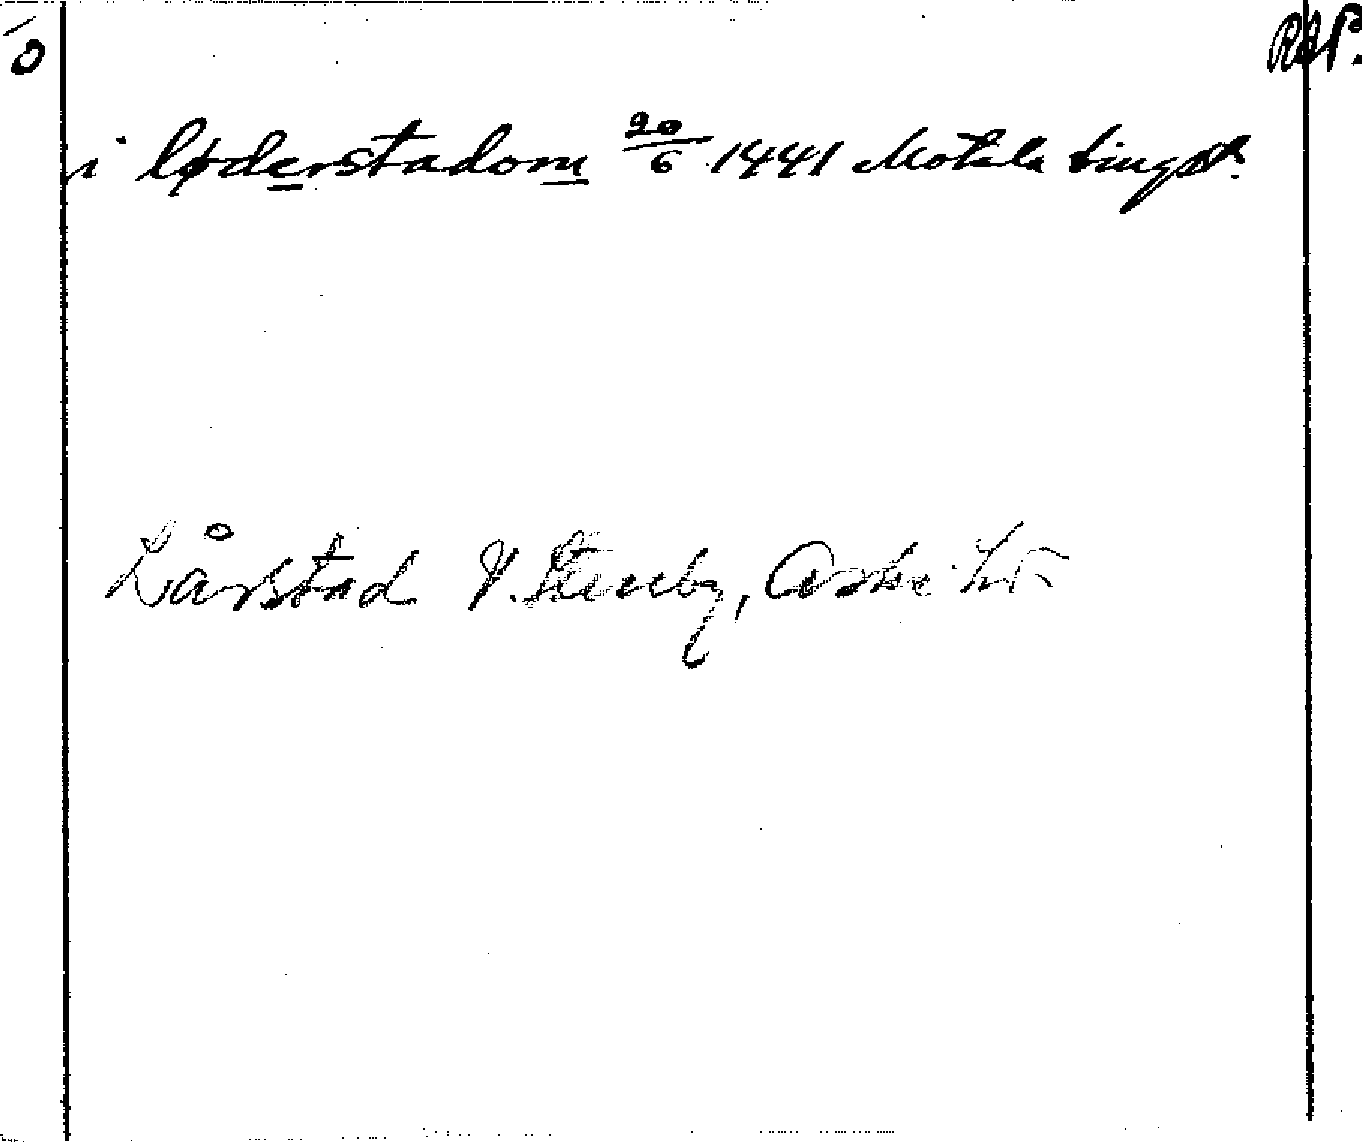 Ö RAP.
i løderstadom 20/6 1441 Motala tingst.
Lårstad V. Stenby, Aska hd